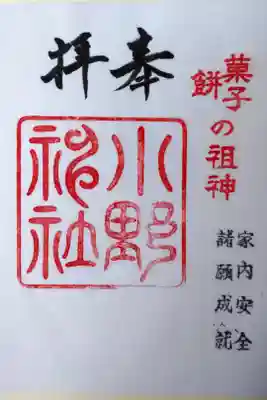 菓子
餅の祖神
奉拝
小野
神社
家内安全
諸願成就